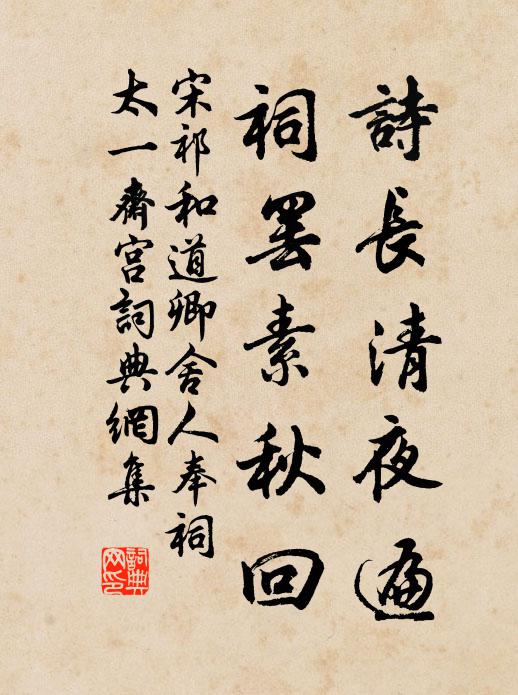 詩長清夜遍
祠罷素秋回
宋祁和道卿舍人奉祠
太一齋宮詞典網集
詞典网印